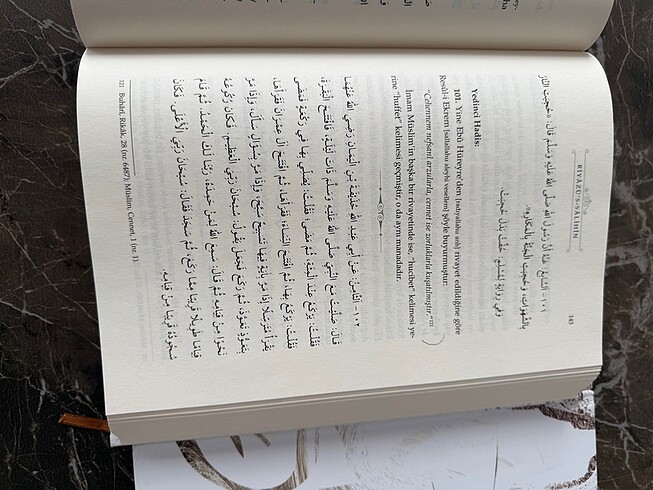 RİYÂZÜ'S-SÂLİHÎN
143
١٠١- اَلسَّابِعُ: عَنْهُ أَنَّ رَسُولَ اللهِ صَلَّى اللهُ عَلَيْهِ وَسَلَّمَ قَالَ: «حُجِبَتِ النَّارُ
بِالشَّهَوَاتِ، وَحُجِبَتِ الْجَنَّةُ بِالْمَكَارِهِ».
Yedinci Hadis:
101. Yine Ebû Hüreyre'den (radıyallahu anh) rivayet edildiğine göre
Resûl-i Ekrem (sallallahu aleyhi vesellem) şöyle buyurmuştur:
"Cehennem nefsanî arzularla, cennet ise zorluklarla kuşatılmıştır."121
İmam Müslim'in başka bir rivayetinde ise, "hucibet" kelimesi ye-
rine "huffet" kelimesi geçmiştir, o da aynı manadadır.
١٠٢- اَلثَّامِنُ: عَنْ أَبِي عَبْدِ اللهِ حُذَيْفَةَ بْنِ الْيَمَانِ رَضِيَ اللهُ عَنْهُمَا
قَالَ: صَلَّيْتُ مَعَ النَّبِيِّ صَلَّى اللهُ عَلَيْهِ وَسَلَّمَ ذَاتَ لَيْلَةٍ، فَافْتَتَحَ الْبَقَرَةَ،
فَقُلْتُ: يَرْكَعُ عِنْدَ الْمِائَةِ، ثُمَّ مَضَى، فَقُلْتُ: يُصَلِّي بِهَا فِي رَكْعَةٍ، فَمَضَى
فَقُلْتُ: يَرْكَعُ بِهَا، ثُمَّ افْتَتَحَ النِّسَاءَ، فَقَرَأَهَا، ثُمَّ افْتَتَحَ آلَ عِمْرَانَ فَقَرَأَهَا،
يَقْرَأُ مُتَرَسِّلًا إِذَا مَرَّ بِآيَةٍ فِيهَا تَسْبِيحٌ سَبَّحَ، وَإِذَا مَرَّ بِسُؤَالٍ سَأَلَ، وَإِذَا مَرَّ
بِتَعَوُّذٍ تَعَوَّذَ، ثُمَّ رَكَعَ فَجَعَلَ يَقُولُ: سُبْحَانَ رَبِّيَ الْعَظِيمِ، فَكَانَ رُكُوعُهُ
نَحْوًا مِنْ قِيَامِهِ ثُمَّ قَالَ: سَمِعَ اللهُ لِمَنْ حَمِدَهُ، رَبَّنَا لَكَ الْحَمْدُ، ثُمَّ قَامَ
قِيَامًا طَوِيلًا قَرِيبًا مِمَّا رَكَعَ، ثُمَّ سَجَدَ فَقَالَ: سُبْحَانَ رَبِّيَ الْأَعْلَى، فَكَانَ
سُجُودُهُ قَرِيبًا مِنْ قِيَامِهِ.
121 Buhârî, Rikâk, 28 (nr. 6487); Müslim, Cennet, 1 (nr. 1).